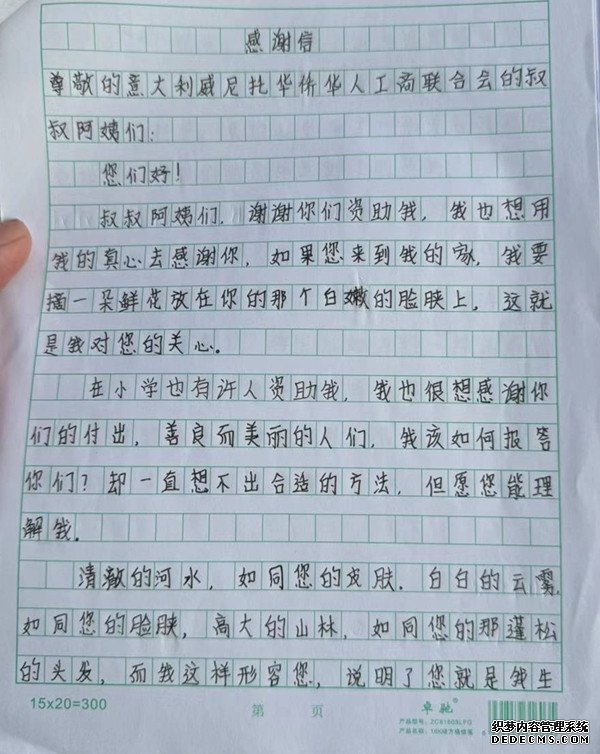 感谢信
尊敬的意大利威尼托华侨华人工商联合会的叔
叔阿姨们:
您们好!
叔叔阿姨们,谢谢你们资助我,我也想用
我的真心去感谢你,如果您来到我的家,我要
摘一朵鲜花放在你的那个白嫩的脸肤上,这就
是我对您的关心。
在小学也有许人资助我,我也很想感谢你
们的付出,善良而美丽的人们,我该如何报答
你们?却一直想不出合适的方法,但愿您能理
解我.
清澈的河水,如同您的皮肤.白白的云雾,
如同您的脸肤,高大的山林,如同您的那蓬松
的头发,而我这样形容您,说明了您就是我生
15x20=300
第 页
卓驰
织梦内容管理系统
DEDECMS.COM